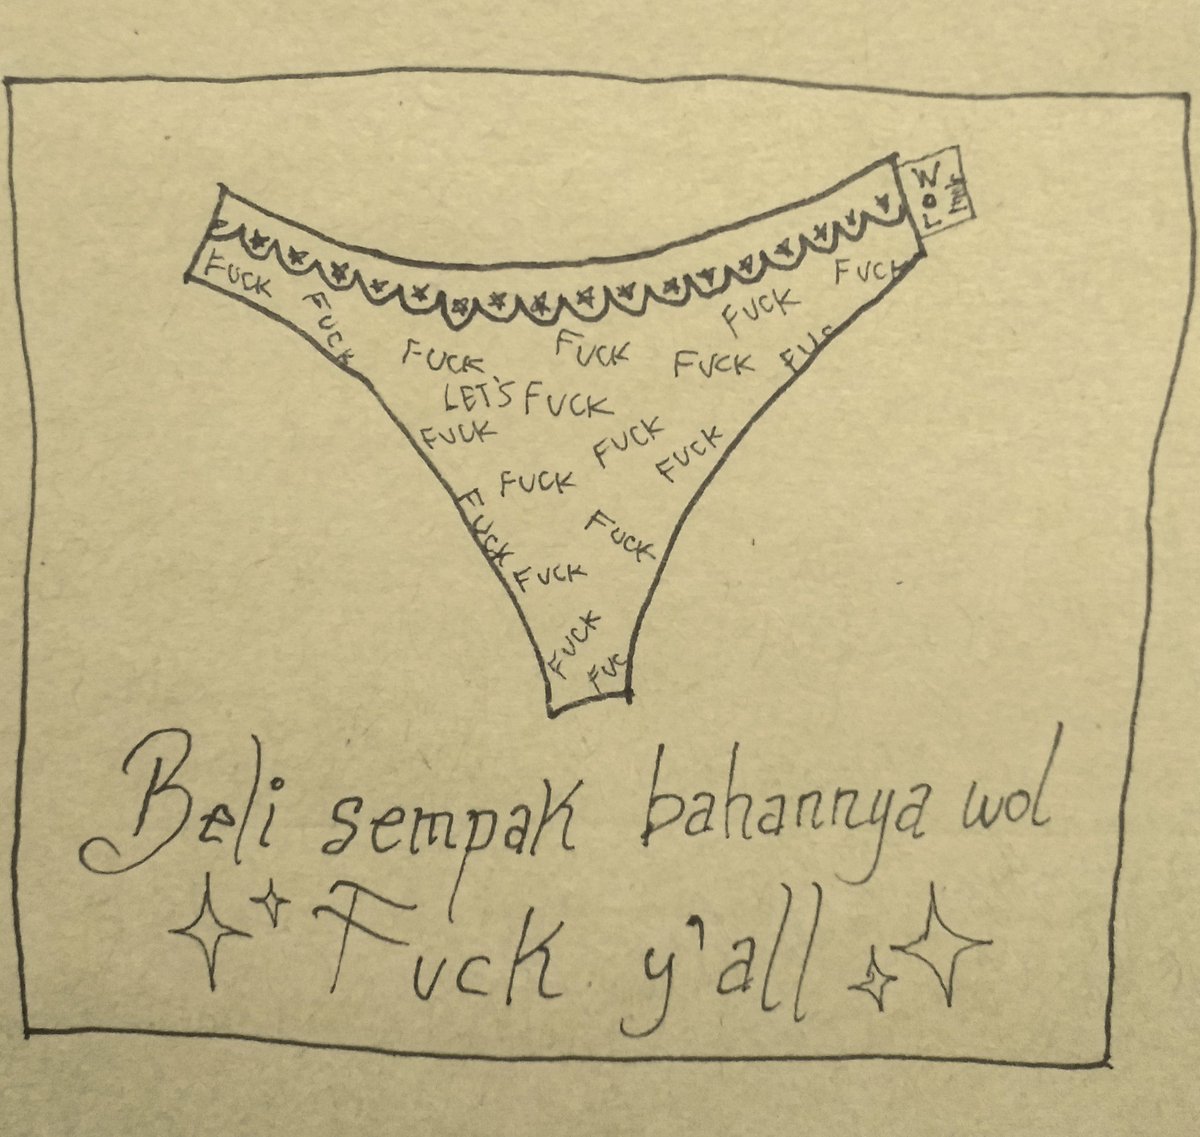 WOL
FUCK
FUCK
FUCK
FUCK
FUCK
FUCK
FUCK
FUC
LET'S FUCK
FUCK
FUCK
FUCK
FUCK
FUCK
FUCK
FUCK
FUCK
FUC
Beli sempak bahannya wol
Fuck y'all